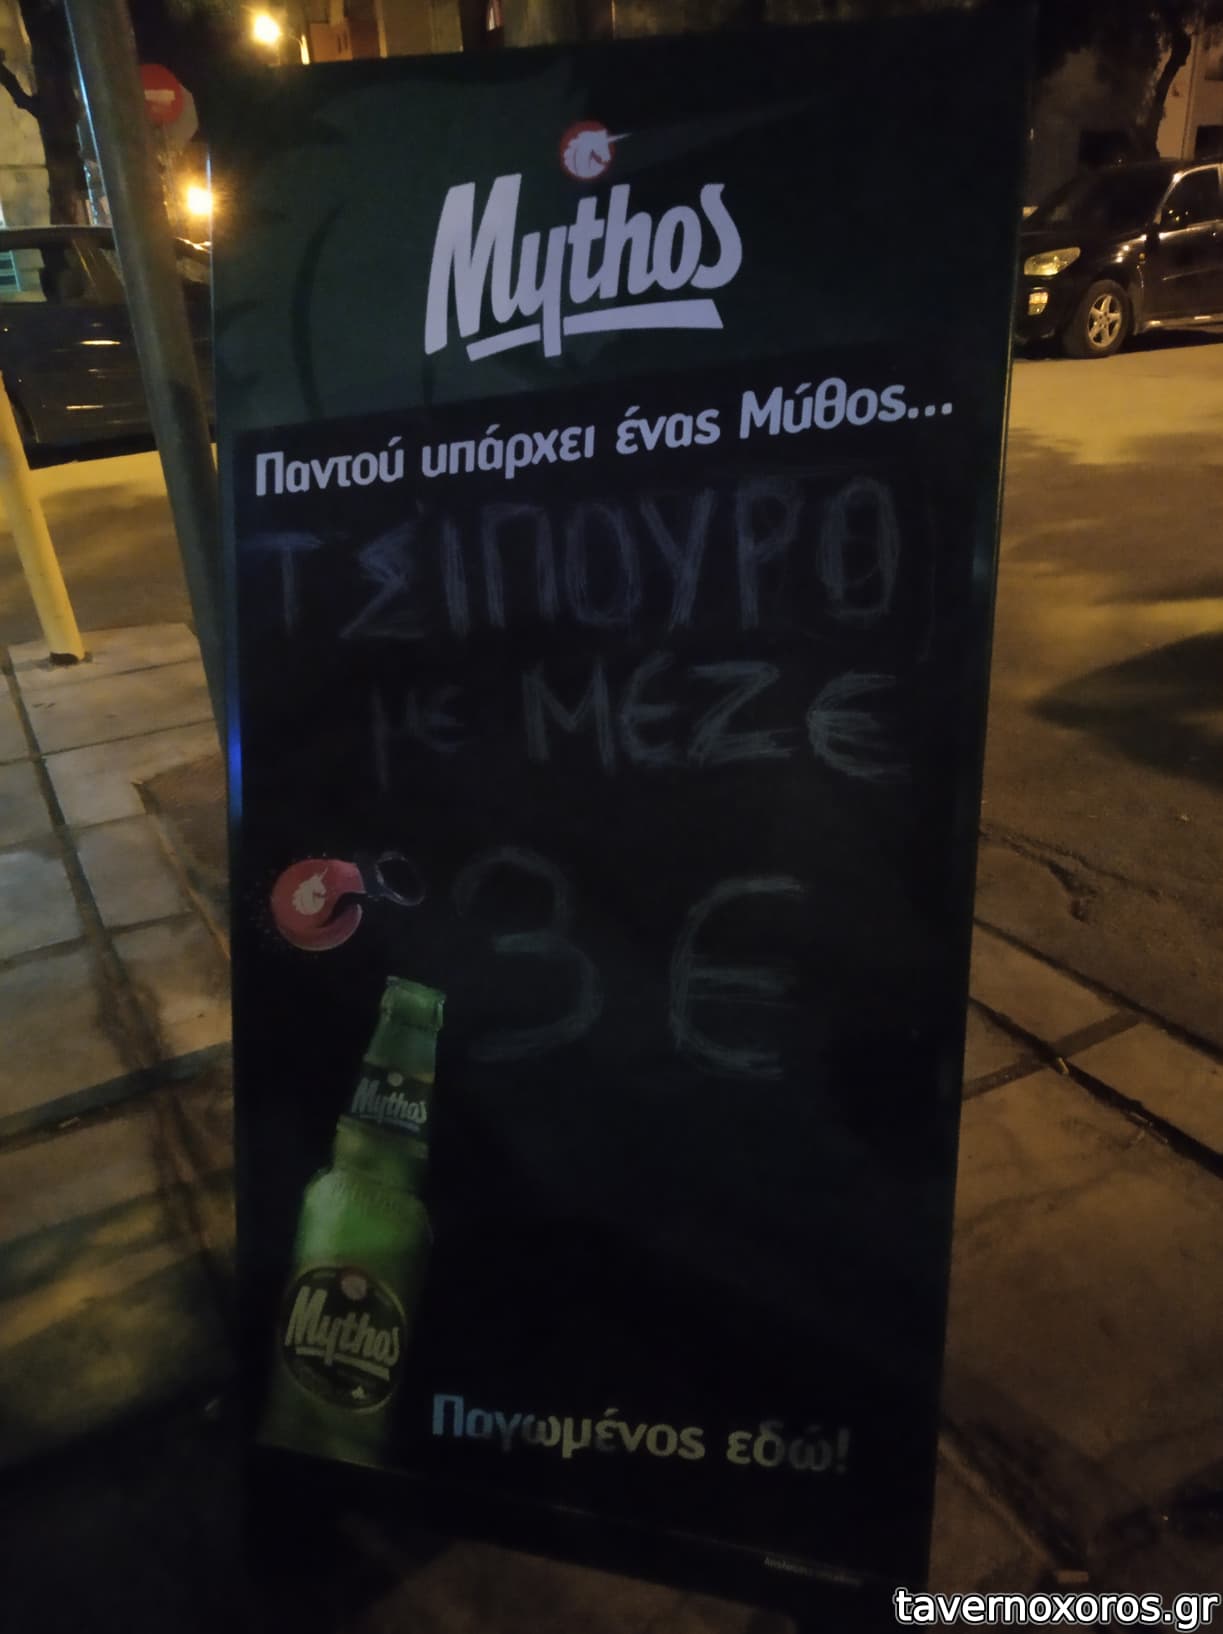 Mythos
Παντού υπάρχει ένας Μύθος...
ΤΣΙΠΟΥΡΟ
με ΜΕΖΕ
3€
Mythos
Mythos
Παγωμένος εδώ!
tavernoxoros.gr